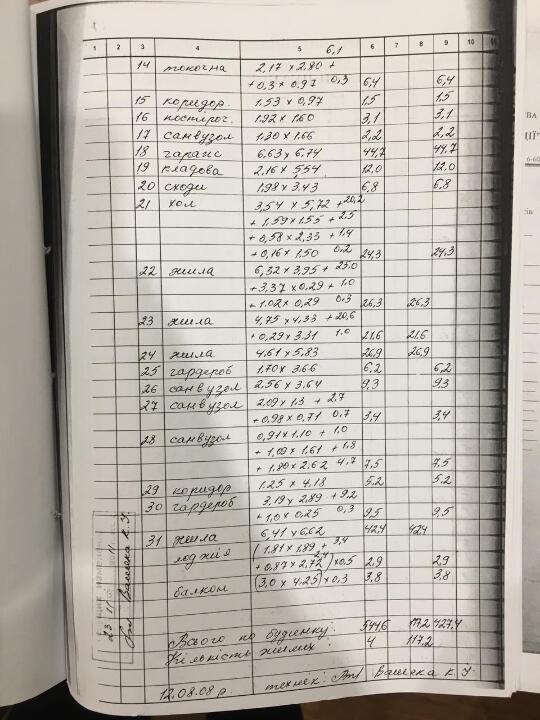 1 2 3 4 5 6 7 8 9 10
6,1
14 топочна 2,17 × 2,80 +
+0,3 × 0,97 0,3 6,4 6,4
15 коридор. 1.53 × 0,97 1,5 1,5
16 1.92 × 1.60 3,1 3,1
17 санвузол 1.30 × 1.66 2,2 2,2
18 гараж 6,63 × 6,74 44,7 44,7
19 кладова 2,16 × 5,54 12,0 12,0
20 сходи 1,98 × 3.43 6,8 6,8
21 хол 3,54 × 5,72 + 20,2
+ 1,59 × 1.55 + 2,5
+ 0,58 × 2,33 + 1,4
+ 0,16 × 1,50 0,2 24,3 24,3
22 жила 6,32 × 3,95 + 25.0
+ 3,37 × 0,29 + 1,0
+ 1.02 × 0,29 0,3 26,3 26,3
23 жила 4,75 × 4.33 + 20,6
+ 0,29 × 3.31 1,0 21,6 21,6
24 жила 4,61 × 5,83 26,9 26,9
25 гардероб 1,70 × 3.66 6,2 6,2
26 санвузол 2.56 × 3,64 9,3 9,3
27 санвузол 2,09 × 1.3 + 2,7
+ 0,98 × 0,71 0,7 3,4 3,4
28 санвузол 0,91 × 1,10 + 1,0
+ 1,09 × 1,61 + 1,8
+ 1,80 × 2.62 4,7 7,5 7,5
29 коридор 1.25 × 4,18 5,2 5,2
30 гардероб 3,19 × 2,89 + 9,2
+ 1,0 × 0,25 0,3 9,5 9,5
31 жила 6,41 × 6,62 42,4 42,4
лоджія (1.81 × 1,89 + 3,4
+ 0,87 × 2,72 2,4) × 0,5 2,9 2,9
балкон (3,0 × 4.25) × 0,3 3,8 3,8
Всього по будинку: 544,6 117,2 427,4
Кількість жилих: 4 117.2
12.08.08 р. технік: Вашека К. У.
23 11 11
Вашека К. У.
ВА
ЦІЇ"
6-60